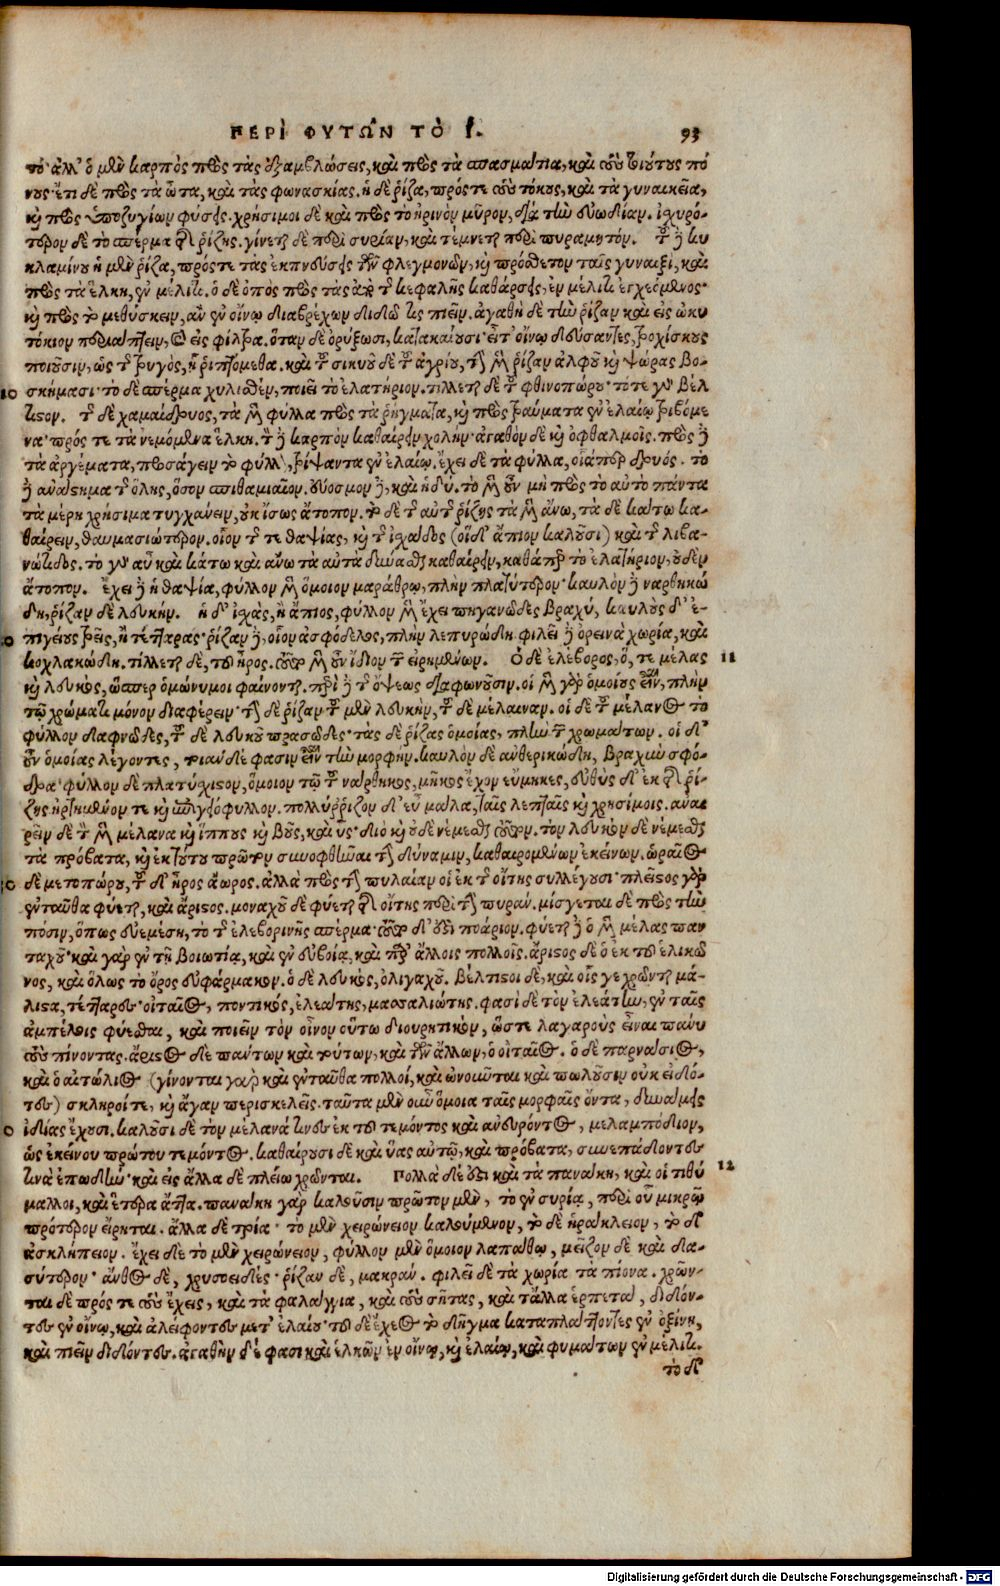 ΠΕΡῚ ΦΥΤΩ͂Ν ΤῸ Ι. 93
το· ἀλλ' ὁ μὲν καρπὸς πρὸς τὰς ἐξαμβλώσεις, καὶ πρὸς τὰ σπάσματα, καὶ τοὺς τοιούτους πό
νους· ἔτι δὲ πρὸς τὰ ὦτα, καὶ τὰς φωνασκίας. ἡ δὲ ῥίζα, πρός τε τοὺς τόκους, καὶ τὰ γυναικεῖα,
καὶ πρὸς ὑποζυγίων φύσας. χρήσιμοι δὲ καὶ πρὸς τὸ ἤρινον μῦρον, διὰ τὴν εὐωδίαν. ἰσχυρό-
τερον δὲ τὸ σπέρμα τῆς ῥίζης. γίνεται δὲ περὶ συρίαν, καὶ τέμνεται περὶ πυραμητόν. τοῦ δὲ κυ
κλαμίνου ἡ μὲν ῥίζα, πρός τε τὰς ἐκπνούσεις τῶν φλεγμονῶν, καὶ πρόσθετον ταῖς γυναιξὶ, καὶ
πρὸς τὰ ἕλκη, ἐν μέλιτι. ὁ δὲ ὀπὸς πρὸς τὰς ἀπὸ τῆς κεφαλῆς καθάρσεις, ἐν μέλιτι ἐγχεόμενος·
καὶ πρὸς τὸ μεθύσκειν, ἂν ἐν οἴνῳ διαβρέχων διδῷ τις πιεῖν. ἀγαθὴ δὲ τὴν ῥίζαν καὶ εἰς ὠκυ
τόκιον περιάπτειν, καὶ εἰς φίλτρα. ὅταν δὲ ὀρύξωσι, κατακαίουσι· εἶτ' οἴνῳ δεύσαντες, τροχίσκους
ποιοῦσιν, ὡς τῆς τρυγὸς, ᾗ ῥυπτόμεθα. καὶ τοῦ σικύου δὲ τοῦ ἀγρίου, τὴν μὲν ῥίζαν ἀλφοῦ καὶ ψώρας βο-
10 σκήμασι· τὸ δὲ σπέρμα χυλισθὲν, ποιεῖ τὸ ἐλατήριον. τίλλεται δὲ τοῦ φθινοπώρου· τότε γὰρ βέλ
τιστον. τῆς δὲ χαμαίδρυος, τὰ μὲν φύλλα πρὸς τὰ ῥήγματα, καὶ πρὸς τραύματα ἐν ἐλαίῳ τριβόμε
να· πρός τε τὰ νεμόμενα ἕλκη. τὸν δὲ καρπὸν καθαίρειν χολήν· ἀγαθὸν δὲ καὶ ὀφθαλμοῖς. πρὸς δὲ
τὰ ἀργέματα, προσάγειν τὸ φύλλον, τρίψαντα ἐν ἐλαίῳ. ἔχει δὲ τὰ φύλλα, οἷάπερ δρυός. τὸ
δὲ ἀνάστημα τῆς ὅλης, ὅσον σπιθαμιαῖον. εὔοσμον δὲ, καὶ ἡδύ. τὸ μὲν οὖν μὴ πρὸς τὸ αὐτὸ πάντα
τὰ μέρη χρήσιμα τυγχάνειν, οὐκ ἴσως ἄτοπον. τὸ δὲ τῆς αὐτῆς ῥίζης τὰ μὲν ἄνω, τὰ δὲ κάτω κα-
θαίρειν, θαυμασιώτερον. οἷον τῆς τε θαψίας, καὶ τῆς ἰσχάδος (οἱ δ' ἄπιον καλοῦσι) καὶ τῆς λιβα-
νώτιδος. τὸ γὰρ αὖ καὶ κάτω καὶ ἄνω τὰ αὐτὰ δύνασθαι καθαίρειν, καθάπερ τὸ ἐλατήριον, οὐδὲν
ἄτοπον. ἔχει δὲ ἡ θαψία, φύλλον μὲν ὅμοιον μαράθρῳ, πλὴν πλατύτερον· καυλὸν δὲ ναρθηκώ
δη, ῥίζαν δὲ λευκήν. ἡ δ' ἰσχὰς, ἢ ἄπιος, φύλλον μὲν ἔχει πηγανῶδες βραχύ, καυλοὺς δ' ἐ-
20 πιγείους τρεῖς, ἢ τέτταρας· ῥίζαν δὲ, οἷον ἀσφόδελος, πλὴν λεπυρώδη. φιλεῖ δὲ ὀρεινὰ χωρία, καὶ
κοχλακώδη. τίλλεται δὲ, τοῦ ἦρος. τοῦτο μὲν οὖν ἴδιον τῶν εἰρημένων. Ὁ δὲ ἐλέβορος, ὅ, τε μέλας 11
καὶ λευκὸς, ὥσπερ ὁμώνυμοι φαίνονται. περὶ δὲ τῆς ὄψεως διαφωνοῦσιν. οἱ μὲν γὰρ ὁμοίους εἶναι, πλὴν
τῷ χρώματι μόνον διαφέρειν· τὴν δὲ ῥίζαν τοῦ μὲν λευκὴν, τοῦ δὲ μέλαιναν. οἱ δὲ τοῦ μέλανος τὸ
φύλλον δαφνῶδες, τοῦ δὲ λευκοῦ πρασῶδες· τὰς δὲ ῥίζας ὁμοίας, πλὴν τῶν χρωμάτων. οἱ δ'
οὖν ὁμοίας λέγοντες, τοιάνδε φασιν εἶναι τὴν μορφήν. καυλὸν δὲ ἀνθερικώδη, βραχὺν σφό-
δρα· φύλλον δὲ πλατύχιστον, ὅμοιον τῷ τοῦ νάρθηκος, μῆκος ἔχον εὔμηκες, εὐθὺς δ' ἐκ τῆς ῥί-
ζης ἠρτημένον τε καὶ ἐπιγειόφυλλον. πολλύῤῥιζον δ' εὖ μάλα, ταῖς λεπταῖς καὶ χρησίμοις. ἀναι
ρεῖν δὲ τὸν μὲν μέλανα καὶ ἵππους καὶ βοῦς, καὶ ὗς· διὸ καὶ οὐδὲ νέμεσθαι τοῦτον. τὸν λευκὸν δὲ νέμεσθαι
τὰ πρόβατα, καὶ ἐκ τούτου πρῶτον συνοφθῆναι τὴν δύναμιν, καθαιρομένων ἐκείνων. ὡραῖος
30 δὲ μετοπώρου, τοῦ δ' ἦρος ἄωρος. ἀλλὰ πρὸς τὴν πυλαίαν οἱ ἐκ τῆς οἴτης συλλέγουσι· πλεῖστος γὰρ
ἐνταῦθα φύεται, καὶ ἄριστος. μοναχοῦ δὲ φύεται τῆς οἴτης περὶ τὴν πυράν. μίσγεται δὲ πρὸς τὴν
πόσιν, ὅπως εὐεμέση, τὸ τῆς ἐλεβορινῆς σπέρμα· τοῦτο δ' ἐστὶ ποάριον. φύεται δὲ ὁ μὲν μέλας παν
ταχοῦ· καὶ γὰρ ἐν τῇ βοιωτίᾳ, καὶ ἐν εὐβοίᾳ, καὶ παρ' ἄλλοις πολλοῖς. ἄριστος δὲ ὁ ἐκ τοῦ ἑλικῶ
νος, καὶ ὅλως τὸ ὄρος εὐφάρμακον. ὁ δὲ λευκὸς, ὀλιγαχοῦ. βέλτιστοι δὲ, καὶ οἷς γε χρῶνται μά-
λιστα, τέτταρες· οἰταῖος, ποντικὸς, ἐλεάτης, μασσαλιώτης. φασὶ δὲ τὸν ἐλεάτην, ἐν ταῖς
ἀμπέλοις φύεσθαι, καὶ ποιεῖν τὸν οἶνον οὕτω διουρητικὸν, ὥστε λαγαροὺς εἶναι πάνυ
τοὺς πίνοντας. ἄριστος δὲ πάντων καὶ τούτων, καὶ τῶν ἄλλων, ὁ οἰταῖος. ὁ δὲ παρνάσιος,
καὶ ὁ αἰτώλιος (γίνονται γὰρ καὶ ἐνταῦθα πολλοί, καὶ ὠνοῦνται καὶ πωλοῦσιν οὐκ εἰδό-
τες) σκληροί τε, καὶ ἄγαν περισκελεῖς. ταῦτα μὲν οὖν ὅμοια ταῖς μορφαῖς ὄντα, δυνάμεις
40 ἰδίας ἔχουσι. καλοῦσι δὲ τὸν μέλανά τινες ἐκ τοῦ τεμόντος καὶ ἀνευρόντος, μελαμπόδιον,
ὡς ἐκείνου πρώτου τεμόντος. καθαίρουσι δὲ καὶ ὕας αὐτῷ, καὶ πρόβατα, συνεπάδοντες
τινὰ ἐπῳδὴν· καὶ εἰς ἄλλα δὲ πλείω χρῶνται. Πολλὰ δέ ἐστι καὶ τὰ πανάκη, καὶ οἱ τιθύ 12
μαλλοι, καὶ ἕτερα ἄττα. πανάκη γὰρ καλοῦσιν πρῶτον μὲν, τὸ ἐν συρίᾳ, περὶ οὗ μικρῷ
πρότερον εἴρηται. ἄλλα δὲ τρία· τὸ μὲν χειρώνειον καλούμενον, τὸ δὲ ἡράκλειον, τὸ δ'
ἀσκλήπειον. ἔχει δὲ τὸ μὲν χειρώνειον, φύλλον μὲν ὅμοιον λαπάθῳ, μεῖζον δὲ καὶ δα-
σύτερον· ἄνθος δὲ, χρυσοειδές· ῥίζαν δὲ, μακράν. φιλεῖ δὲ τὰ χωρία τὰ πίονα. χρῶν-
ται δὲ πρός τε τοὺς ἔχεις, καὶ τὰ φαλάγγια, καὶ τοὺς σῆτας, καὶ τἄλλα ἑρπετὰ, διδόν-
τες ἐν οἴνῳ, καὶ ἀλείφοντες μετ' ἐλαίου· τοῦ δὲ ἔχεος τὸ δῆγμα καταπλάττοντες ἐν ὀξίνη,
καὶ πιεῖν διδόντες. ἀγαθὴν δέ φασι καὶ ἑλκῶν ἐν οἴνῳ, καὶ ἐλαίῳ, καὶ φυμάτων ἐν μέλιτι.
τὸ δ'
Digitalisierung gefördert durch die Deutsche Forschungsgemeinschaft - DFG